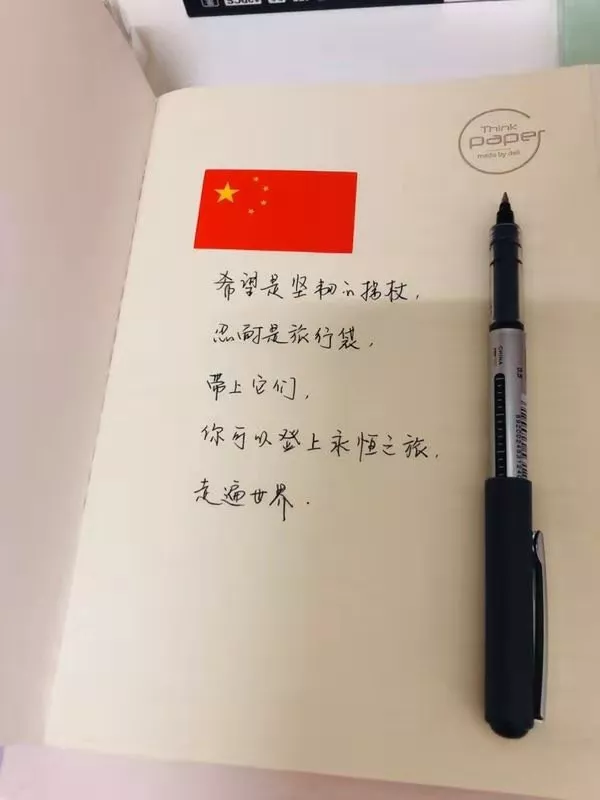 Think
paper
made by deli
希望是坚韧的拐杖，
忍耐是旅行袋，
带上它们，
你可以登上永恒之旅，
走遍世界.
CHINA
0.5